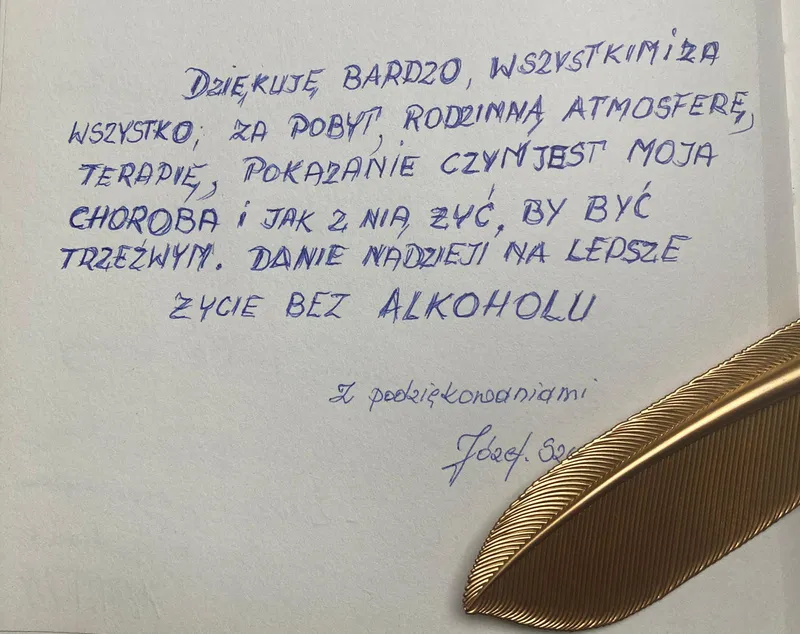 DZIĘKUJĘ BARDZO, WSZYSTKIM I ZA
WSZYSTKO, ZA POBYT, RODZINNĄ ATMOSFERĘ,
TERAPIĘ, POKAZANIE CZYM JEST MOJA
CHOROBA i JAK Z NIĄ ŻYĆ, BY BYĆ
TRZEŹWYM. DANIE NADZIEJI NA LEPSZE
ŻYCIE BEZ ALKOHOLU
Z podziękowaniami
Józef.